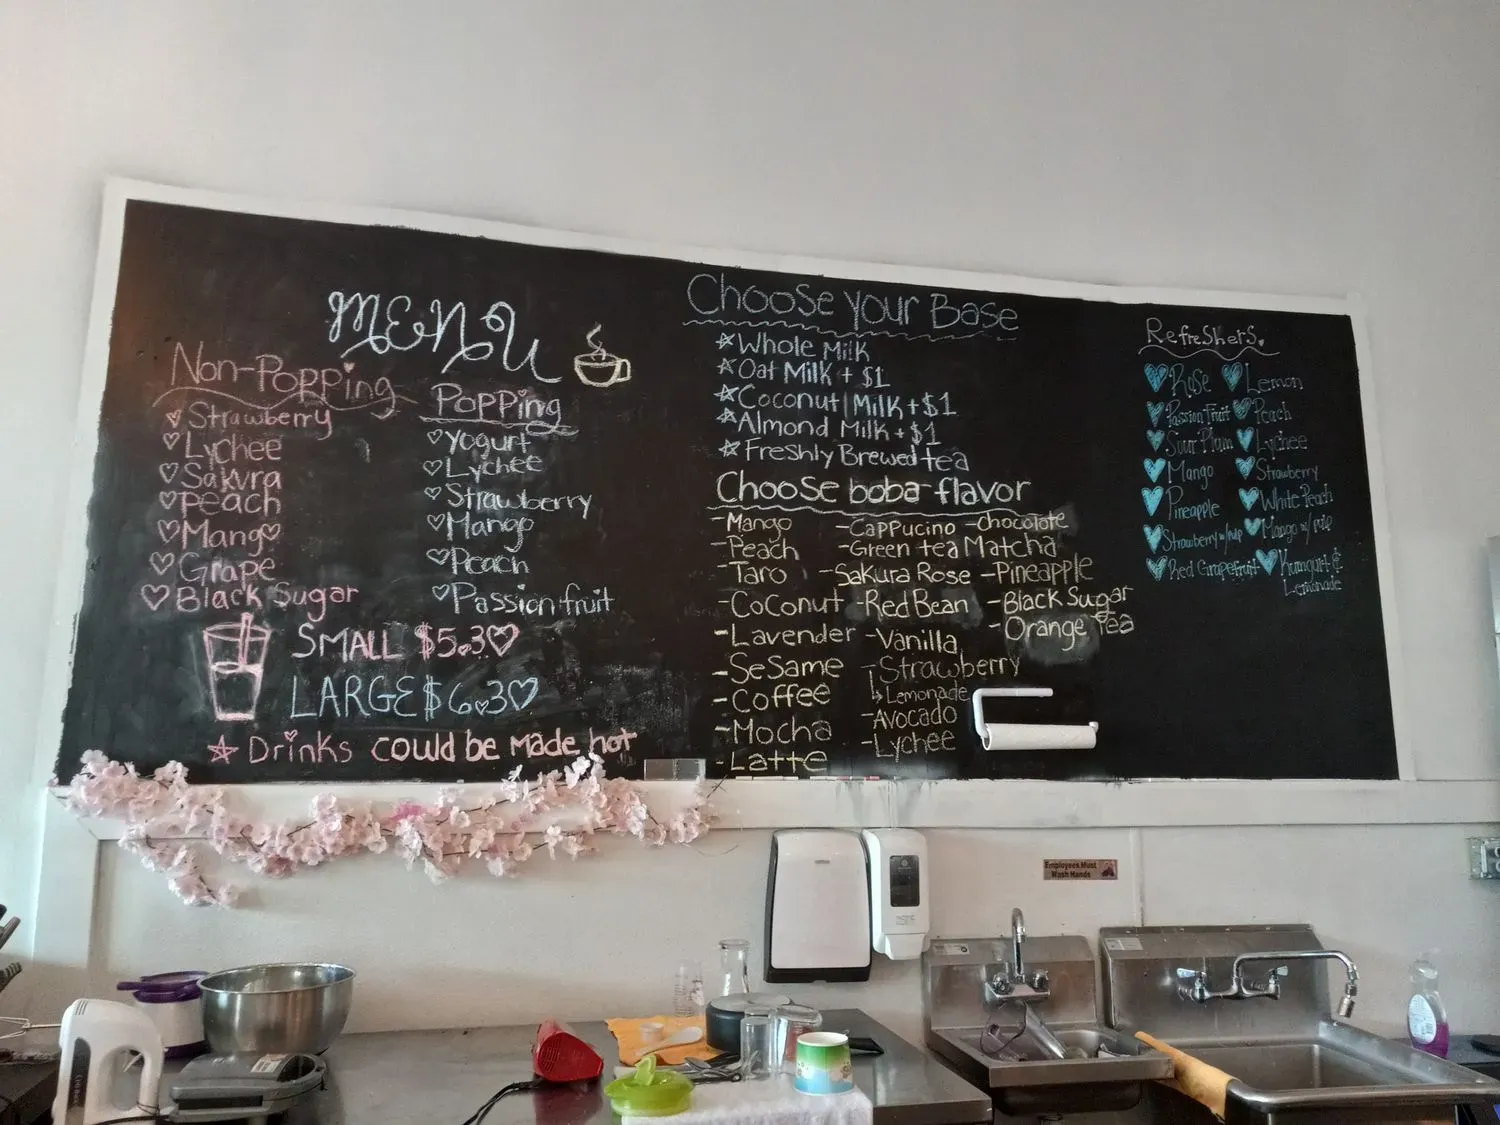 MENU
Non-Popping
Strawberry
Lychee
Sakura
Peach
Mango
Grape
Black Sugar
Popping
Yogurt
Lychee
Strawberry
Mango
Peach
Passion fruit
SMALL $5.30
LARGE $6.30
Drinks could be made hot
Choose your Base
Whole Milk
Oat Milk + $1
Coconut Milk + $1
Almond Milk + $1
Freshly Brewed tea
Choose boba flavor
- Mango
- Peach
- Taro
- Coconut
- Lavender
- SeSame
- Coffee
- Mocha
- Latte
- Cappucino
- Green tea Matcha
- Sakura Rose
- Red Bean
- Vanilla
- Strawberry
Lemonade
- Avocado
- Lychee
- chocolate
- Pineapple
- Black Sugar
- Orange Tea
Refreshers.
Rose
Lemon
Passion Fruit
Peach
Sour Plum
Lychee
Mango
Strawberry
Pineapple
White Peach
Strawberry w/ pulp
Mango w/ pulp
Red Grapefruit
Kumquat &
Lemonade
Employees Must
Wash Hands